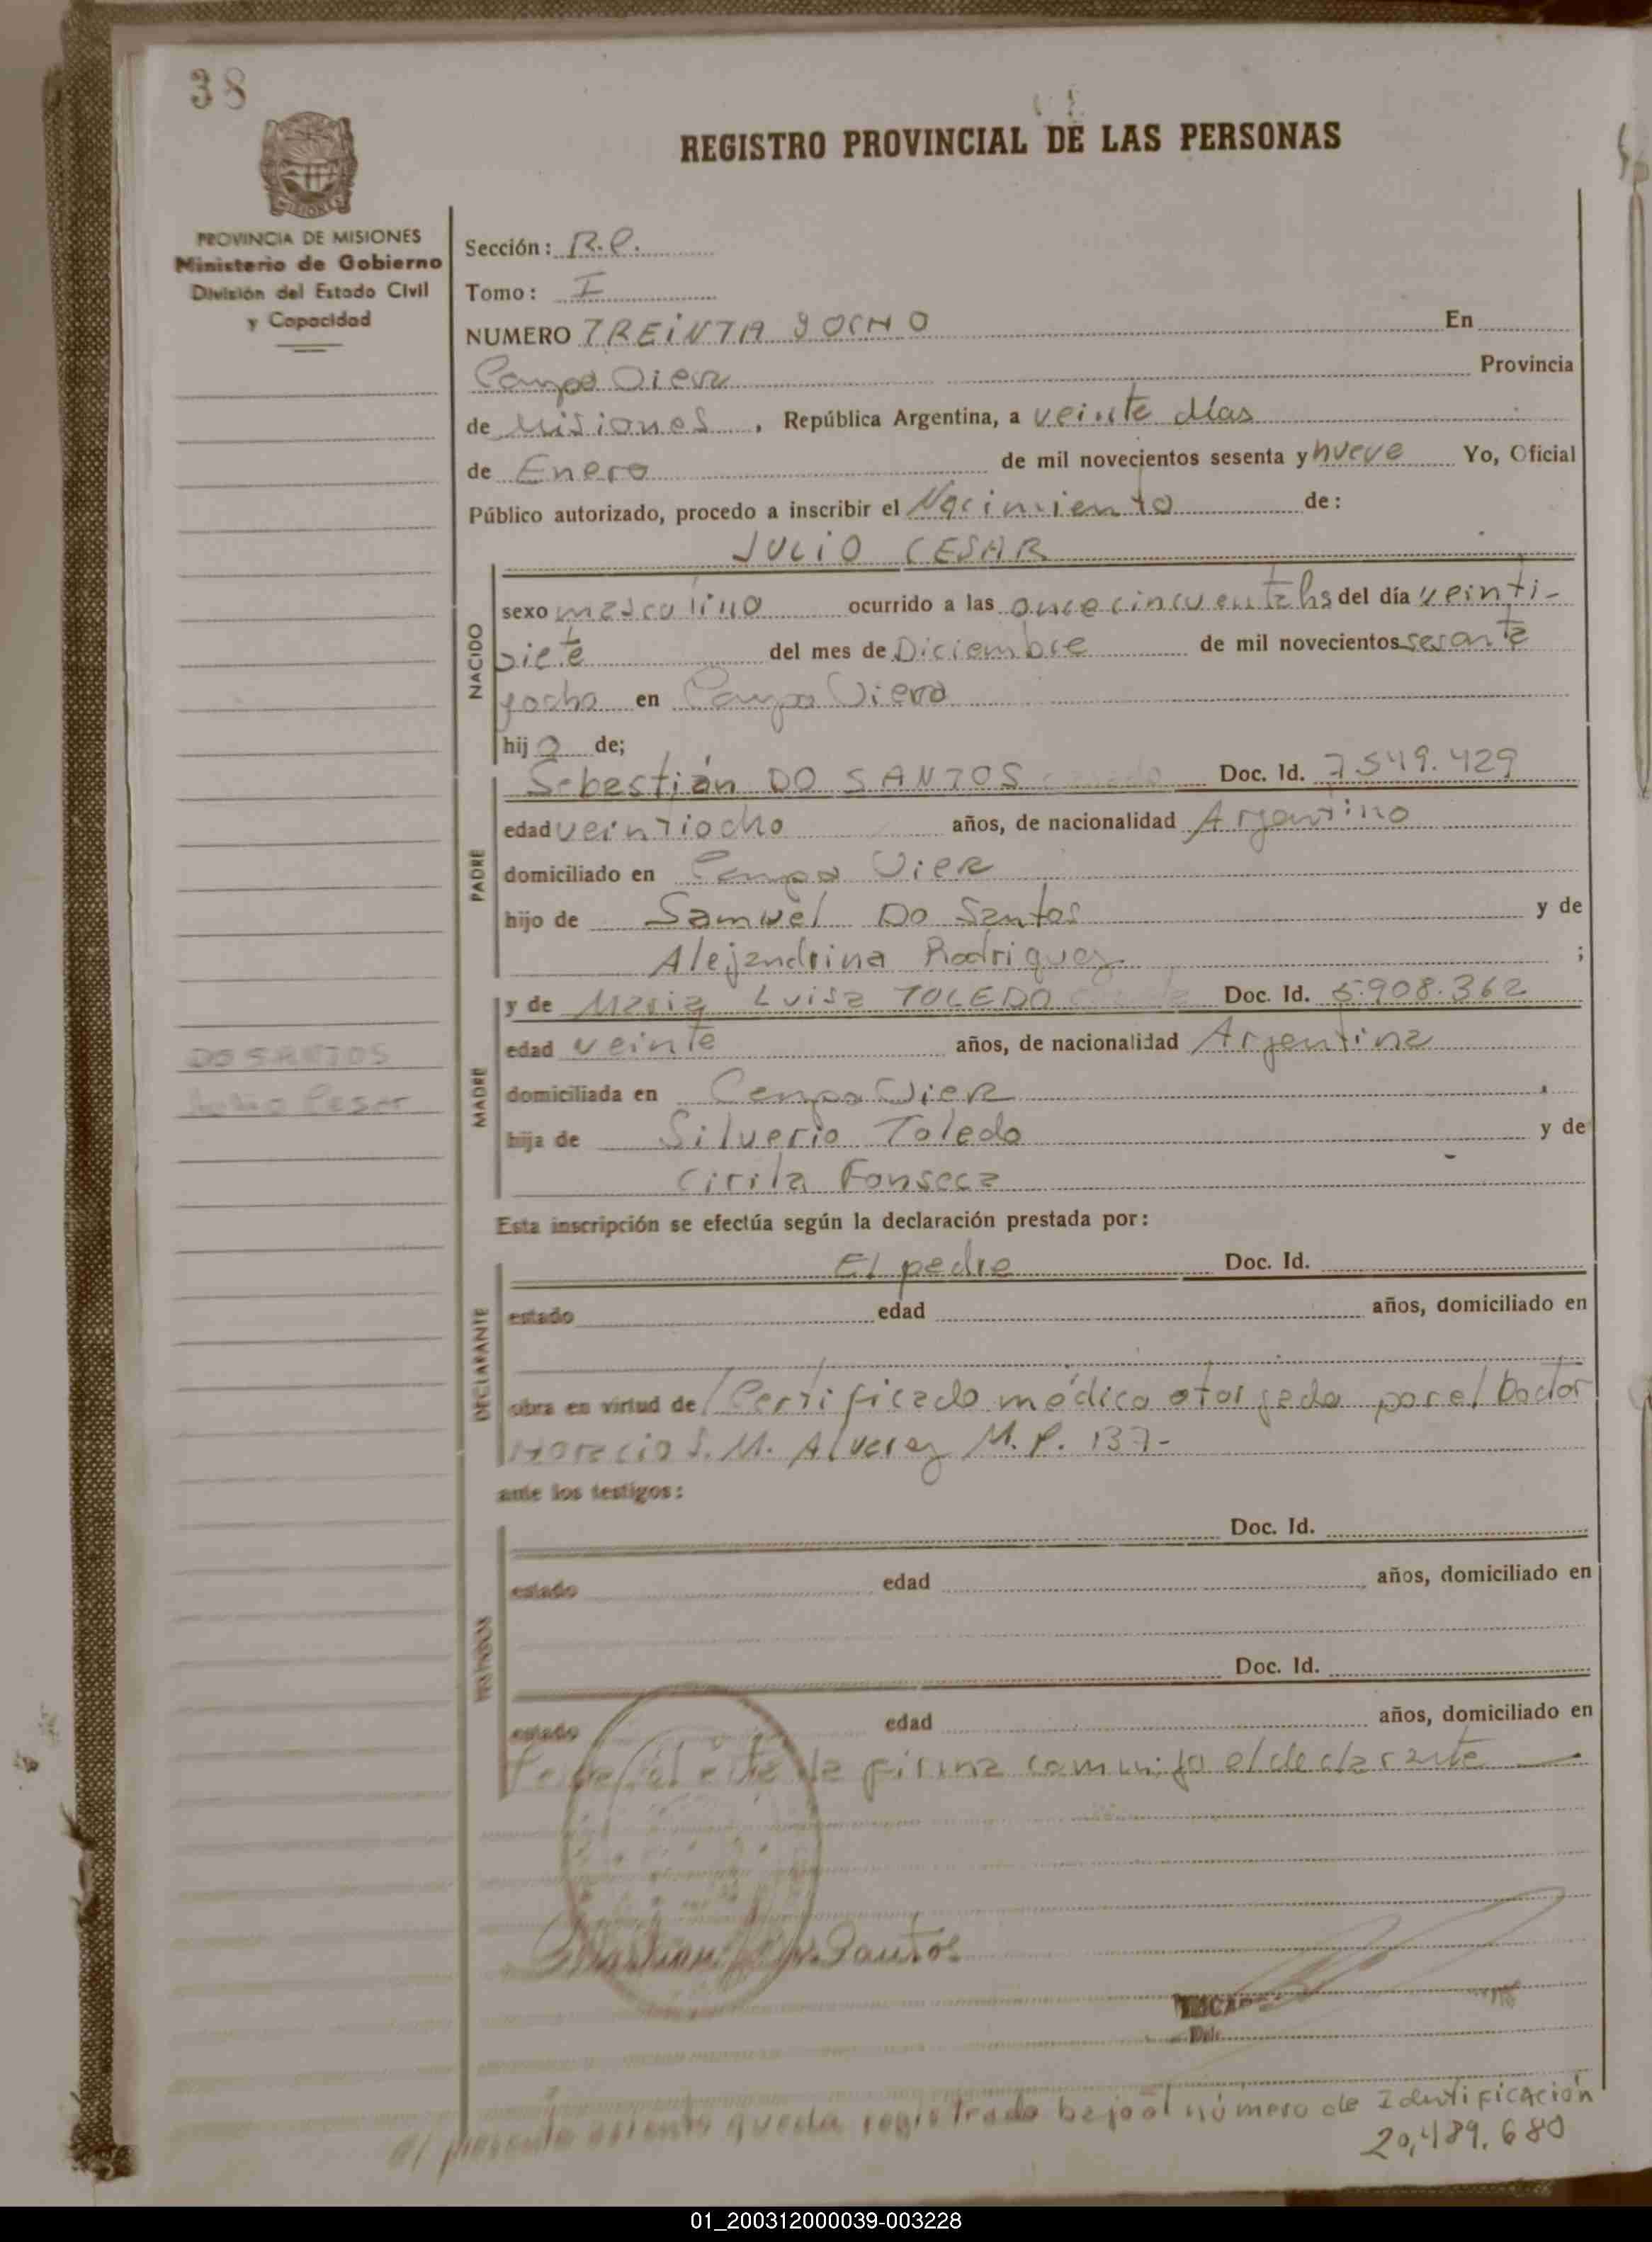 38
REGISTRO PROVINCIAL DE LAS PERSONAS
MISIONES
PROVINCIA DE MISIONES
Ministerio de Gobierno
División del Estado Civil
y Capacidad
Sección: R.C.
Tomo: I
NUMERO TREINTA y OCHO En
Campo Viera Provincia
de Misiones, República Argentina, a veinte días
de Enero de mil novecientos sesenta y nueve Yo, Oficial
Público autorizado, procedo a inscribir el Nacimiento de:
JULIO CESAR
NACIDO
sexo masculino ocurrido a las once cincuenta hs del día veinti-
siete del mes de Diciembre de mil novecientos sesenta
y ocho en Campo Viera
hijo de;
PADRE
Sebastián DO SANTOS Doc. Id. 7.549.429
edad veintiocho años, de nacionalidad Argentino
domiciliado en Campo Viera
hijo de Samuel Do Santos y de
Alejandrina Rodriguez ;
MADRE
y de Maria Luisa TOLEDO Doc. Id. 5.908.362
edad veinte años, de nacionalidad Argentina
DO SANTOS
Julio Cesar
domiciliada en Campo Viera
hija de Silverio Toledo y de
Cirila Fonseca
Esta inscripción se efectúa según la declaración prestada por:
DECLARANTE
El padre Doc. Id.
estado edad años, domiciliado en
obra en virtud de Certificado médico otorgado por el Doctor
Horacio S. M. Alvarez M. P. 137-
ante los testigos:
TESTIGOS
Doc. Id.
estado edad años, domiciliado en
Doc. Id.
estado edad años, domiciliado en
la firma conmigo el declarante
Sebastian Santos
el presente asiento queda registrado bajo el número de Identificación
20,489.680
01_200312000039-003228